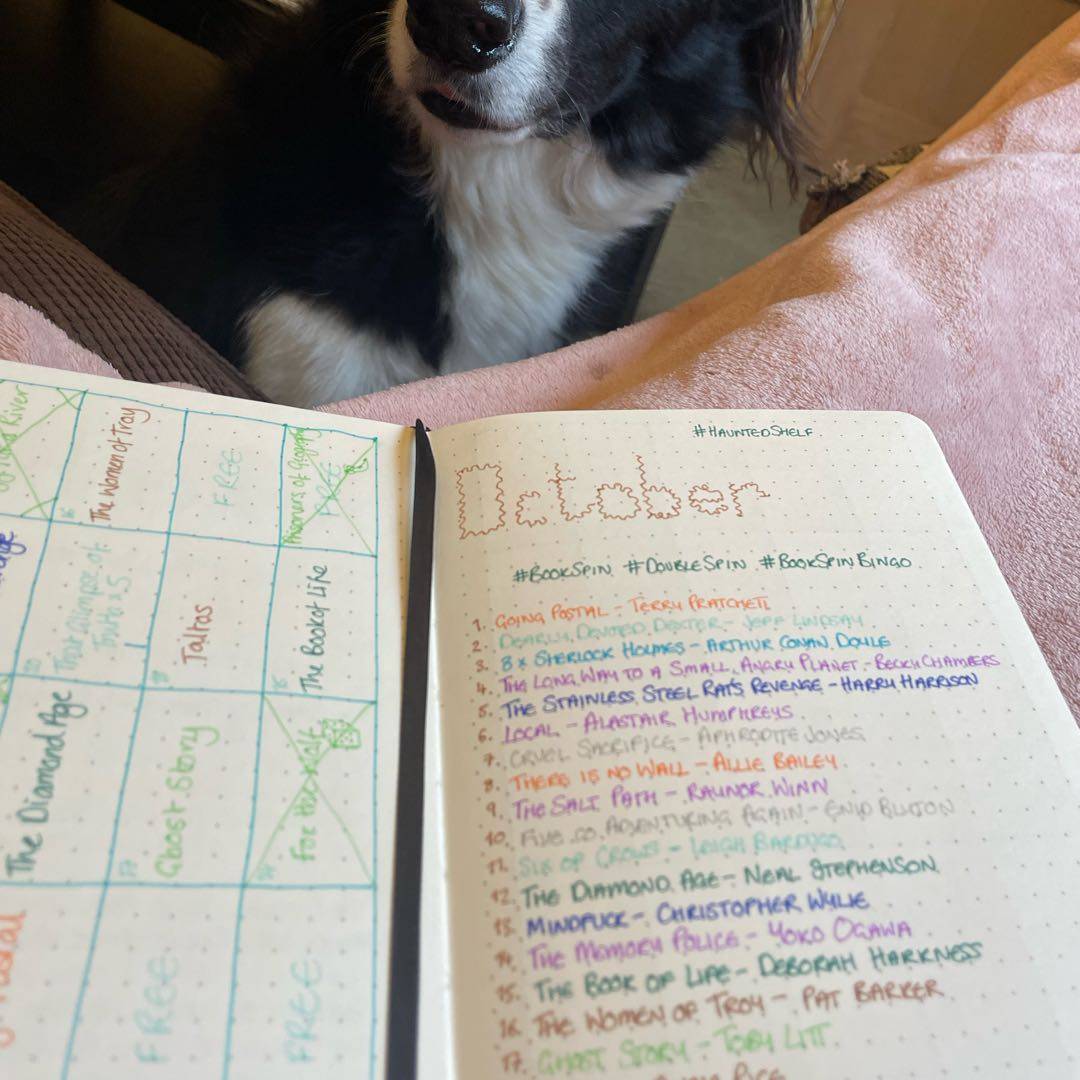 River
16
The Women of Troy
FREE
Prisoners of Geography
FREE
That Glimpse of
Truth x 5
Taltos
15
The Book of Life
The Diamond Age
17
Ghost Story
14
For those
Postal
FREE
FREE
#HAUNTEDSHELF
October
#BOOKSPIN #DOUBLESPIN #BOOKSPINBINGO
1. GOING POSTAL - TERRY PRATCHETT
2. DEARLY DEVOTED DEXTER - JEFF LINDSAY
3. 8x SHERLOCK HOLMES - ARTHUR CONAN DOYLE
4. THE LONG WAY TO A SMALL, ANGRY PLANET - BECKY CHAMBERS
5. THE STAINLESS STEEL RAT'S REVENGE - HARRY HARRISON
6. LOCAL - ALASTAIR HUMPHREYS
7. CRUEL SACRIFICE - APHRODITE JONES
8. THERE IS NO WALL - ALLIE BAILEY
9. THE SALT PATH - RAYNOR WINN
10. FIVE GO ADVENTURING AGAIN - ENID BLYTON
11. SIX OF CROWS - LEIGH BARDUGO
12. THE DIAMOND AGE - NEAL STEPHENSON
13. MINDFUCK - CHRISTOPHER WYLIE
14. THE MEMORY POLICE - YOKO OGAWA
15. THE BOOK OF LIFE - DEBORAH HARKNESS
16. THE WOMEN OF TROY - PAT BARKER
17. GHOST STORY - TOBY LITT